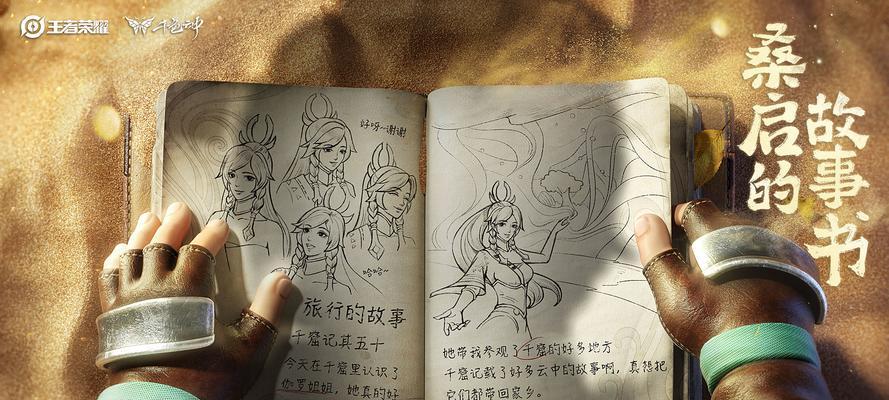 王者荣耀
千窟云中
桑启的
故事书
好呀~谢谢
哈哈~
旅行的故事
千窟记其五十
今天在千窟里认识了
伽罗姐姐，她真的好
她带我参观了千窟的好多地方
千窟记载了好多云中的故事啊，真想把
它们都带回家乡。